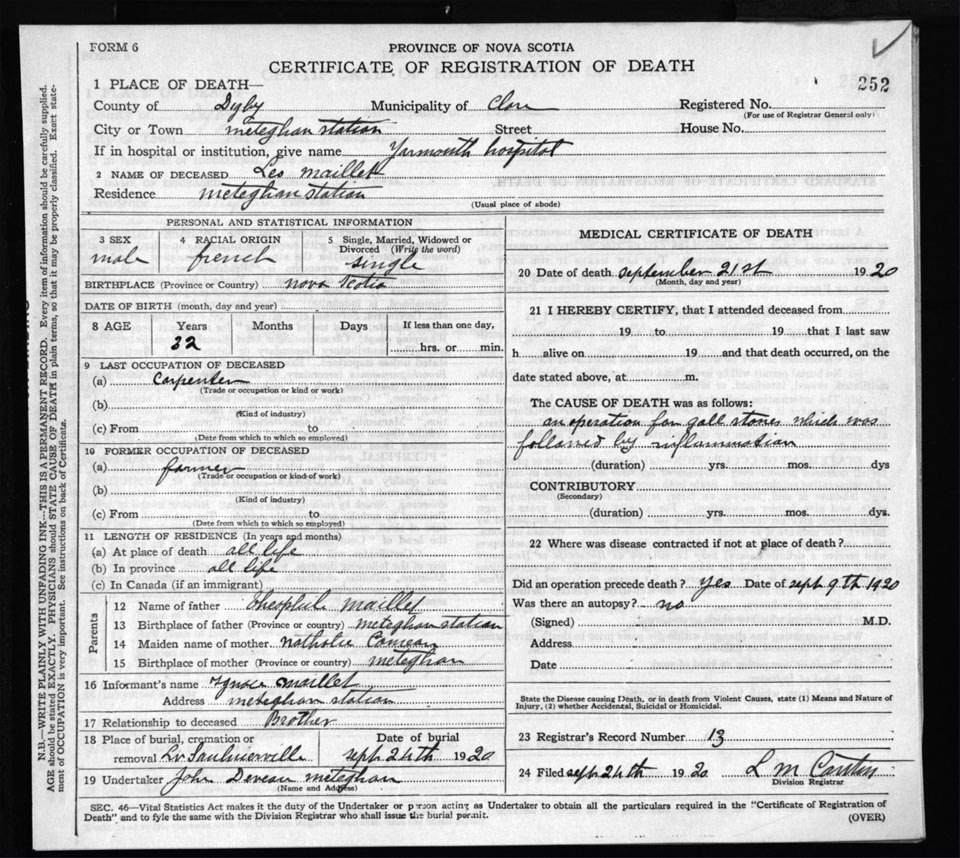 FORM 6
PROVINCE OF NOVA SCOTIA
CERTIFICATE OF REGISTRATION OF DEATH
252
1 PLACE OF DEATH—
County of Digby Municipality of Clare Registered No.
(For use of Registrar General only)
City or Town meteghan station Street House No.
If in hospital or institution, give name Yarmouth hospital
2 NAME OF DECEASED Leo maillet
Residence meteghan station
(Usual place of abode)
PERSONAL AND STATISTICAL INFORMATION
3 SEX 4 RACIAL ORIGIN 5 Single, Married, Widowed or Divorced (Write the word)
male french single
BIRTHPLACE (Province or Country) nova scotia
DATE OF BIRTH (month, day and year)
8 AGE Years Months Days If less than one day,
32 hrs. or min.
9 LAST OCCUPATION OF DECEASED
(a) Carpenter
(Trade or occupation or kind or work)
(b)
(Kind of industry)
(c) From to
(Date from which to which so employed)
10 FORMER OCCUPATION OF DECEASED
(a) farmer
(Trade or occupation or kind of work)
(b)
(Kind of industry)
(c) From to
(Date from which to which so employed)
11 LENGTH OF RESIDENCE (In years and months)
(a) At place of death all life
(b) In province all life
(c) In Canada (if an immigrant)
Parents
12 Name of father Theophile maillet
13 Birthplace of father (Province or country) meteghan station
14 Maiden name of mother nathalie Comeau
15 Birthplace of mother (Province or country) meteghan
16 Informant's name Ignace maillet
Address meteghan station
17 Relationship to deceased Brother
18 Place of burial, cremation or Date of burial
removal Saulnierville sept 24th 1920
19 Undertaker John Deveau meteghan
(Name and Address)
MEDICAL CERTIFICATE OF DEATH
20 Date of death september 21st 1920
(Month, day and year)
21 I HEREBY CERTIFY, that I attended deceased from
19 to 19 that I last saw
h alive on 19 and that death occurred, on the
date stated above, at m.
The CAUSE OF DEATH was as follows:
an operation for gall stones which was
followed by inflammation
(duration) yrs. mos. dys
CONTRIBUTORY
(Secondary)
(duration) yrs. mos. dys.
22 Where was disease contracted if not at place of death?
Did an operation precede death? Yes Date of sept 9th 1920
Was there an autopsy? no
(Signed) M.D.
Address
Date
State the Disease causing Death, or in death from Violent Causes, state (1) Means and Nature of
Injury, (2) whether Accidental, Suicidal or Homicidal.
23 Registrar's Record Number 13
24 Filed sept 24th 1920 L M
Division Registrar
SEC. 46—Vital Statistics Act makes it the duty of the Undertaker or person acting as Undertaker to obtain all the particulars required in the "Certificate of Registration of
Death" and to fyle the same with the Division Registrar who shall issue the burial permit.
(OVER)
N.B.—WRITE PLAINLY WITH UNFADING INK—THIS IS A PERMANENT RECORD. Every item of information should be carefully supplied.
AGE should be stated EXACTLY. PHYSICIANS should STATE CAUSE OF DEATH in plain terms, so that it may be properly classified. Exact state-
ment of OCCUPATION is very important. See instructions on back of Certificate.